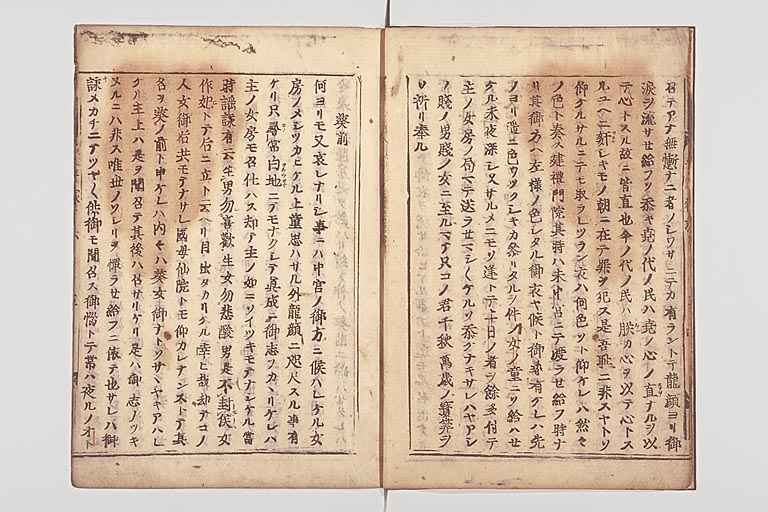 召テアナ無慚ナニ者ノシワサニテカ有ラントテ龍顔ヨリ御
涙ヲ流サセ給フソ忝キ堯ノ代ノ民ハ堯ノ心ノ直ナルヲ以
テ心トスル故ニ皆直也今ノ代ノ民ハ朕カ心ヲ以テ心トス
ルユヘニ姧シキモノ朝ニ在テ罪ヲ犯ス是吾恥ニ非スヤトソ
仰ケルサルニテモ取ラレツラン衣ハ何色ソト仰ケレハ然々
ノ色ト奏ス建禮門院其時ハ未中宮ニテ渡ラセ給フ時ナ
リ其御方ヘ左様ノ色シタル御衣ヤ候ト御尋有ケレハ先
ノヨリ遥ニ色ウツクシキカ參リタルヲ件ノ女ノ童ニソ給ハセ
ケル未夜深シ又サルメニモソ逢トテ上日ノ者ヲ餘多付テ
主ノ女房ノ局マテ送ラセマシ〱ケルソ忝ケナキサレハヤアシ
ノ賤ノ男賤ノ女ニ至ルマテ只コノ君千秋萬歳ノ寳算ヲ
ソ祈リ奉ル
葵前
何ヨリモ又哀レナリシ事ニハ中宮ノ御方ニ候ハレケル女
房ノメシツカヒケル上童思ハサル外龍顔ニ咫尺スル事有
ケリ只尋常白地ニテモナクシテ眞成ニ御志フカヽリケレハ
主ノ女房モ召仕ハス却テ主ノ如ニソイツキモテナシケル當
時謡詠有云生男勿喜歡生女勿悲酸男是不封侯女
作妃トテ后ニ立ト云ヘリ目出タカリケル幸ヒ哉却テコノ
人女御后共モテナサレ國母仙院トモ仰カレナンストテ其
名ヲ葵ノ前ト申ケレハ内々ハ葵女御ナトソサヽヤキアハレ
ケル主上ハ是ヲ聞召テ其後ハ召サリケリ是ハ御志ノツキ
ヌルニハ非ス唯世ノソシリヲ憚ラセ給フニ依テ也サレハ御
詠メカチニテツヤ〱供御モ聞召ス御惱トテ常ハ夜ルノオト